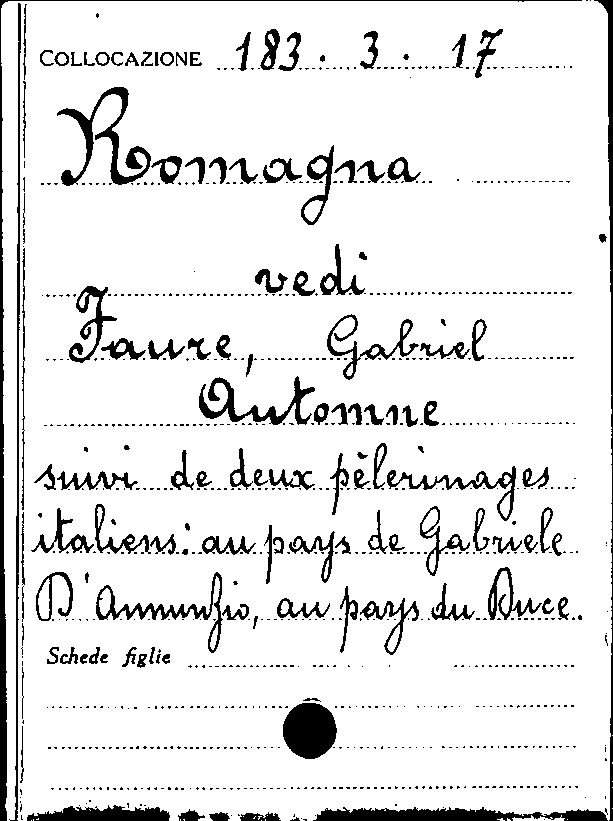 COLLOCAZIONE 183. 3. 17
Romagna
vedi
Faure, Gabriel
Automne
suivi de deux pèlerinages
italiens: au pays de Gabriele
D'Annunzio, au pays du Duce.
Schede figlie